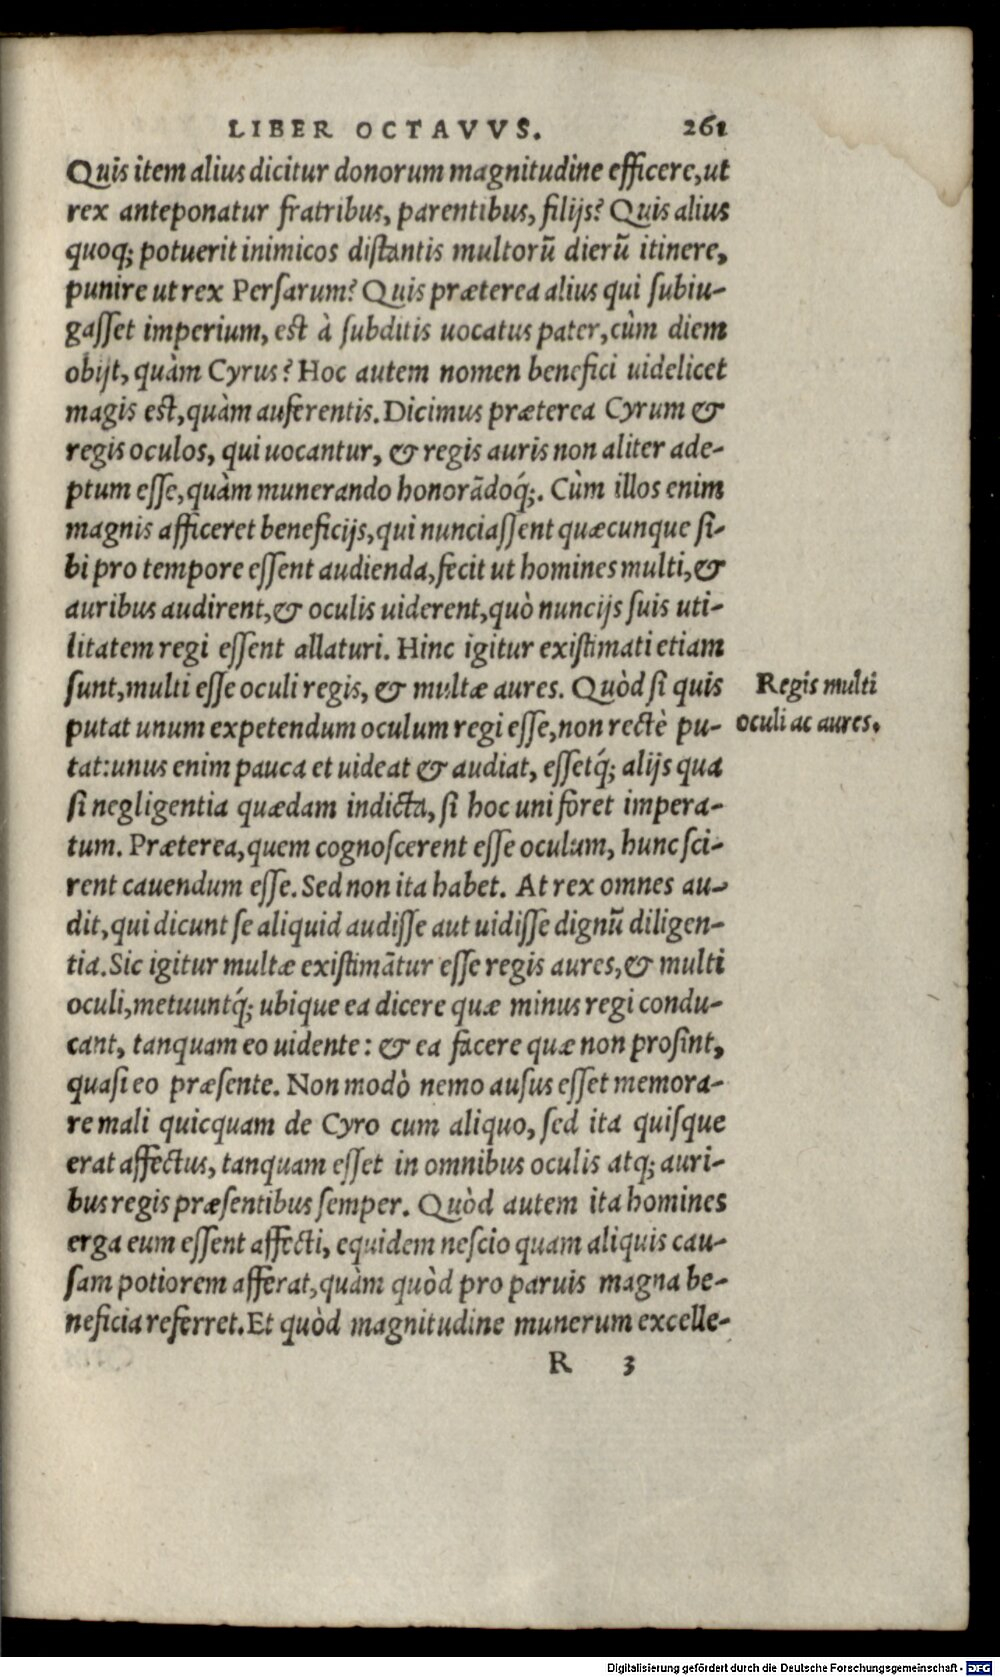 LIBER OCTAVVS. 261
Quis item alius dicitur donorum magnitudine efficere, ut
rex anteponatur fratribus, parentibus, filijs? Quis alius
quoq; potuerit inimicos distantis multorũ dierũ itinere,
punire ut rex Persarum? Quis præterea alius qui subiu-
gasset imperium, est à subditis uocatus pater, cùm diem
obijt, quàm Cyrus? Hoc autem nomen benefici uidelicet
magis est, quàm auferentis. Dicimus præterea Cyrum &
regis oculos, qui uocantur, & regis auris non aliter ade-
ptum esse, quàm munerando honorãdoq́;. Cùm illos enim
magnis afficeret beneficijs, qui nunciassent quæcunque si-
bi pro tempore essent audienda, fecit ut homines multi, &
auribus audirent, & oculis uiderent, quò nuncijs suis uti-
litatem regi essent allaturi. Hinc igitur existimati etiam
sunt, multi esse oculi regis, & multæ aures. Quòd si quis
putat unum expetendum oculum regi esse, non rectè pu-
tat: unus enim pauca et uideat & audiat, essetq́; alijs qua
si negligentia quædam indicta, si hoc uni foret impera-
tum. Præterea, quem cognoscerent esse oculum, hunc sci-
rent cauendum esse. Sed non ita habet. At rex omnes au-
dit, qui dicunt se aliquid audisse aut uidisse dignũ diligen-
tia. Sic igitur multæ existimãtur esse regis aures, & multi
oculi, metuuntq́; ubique ea dicere quæ minus regi condu-
cant, tanquam eo uidente: & ea facere quæ non prosint,
quasi eo præsente. Non modò nemo ausus esset memora-
re mali quicquam de Cyro cum aliquo, sed ita quisque
erat affectus, tanquam esset in omnibus oculis atq; auri-
bus regis præsentibus semper. Quòd autem ita homines
erga eum essent affecti, equidem nescio quam aliquis cau-
sam potiorem afferat, quàm quòd pro paruis magna be-
neficia referret. Et quòd magnitudine munerum excelle-
R 3
Regis multi
oculi ac aures.
Digitalisierung gefördert durch die Deutsche Forschungsgemeinschaft - DFG